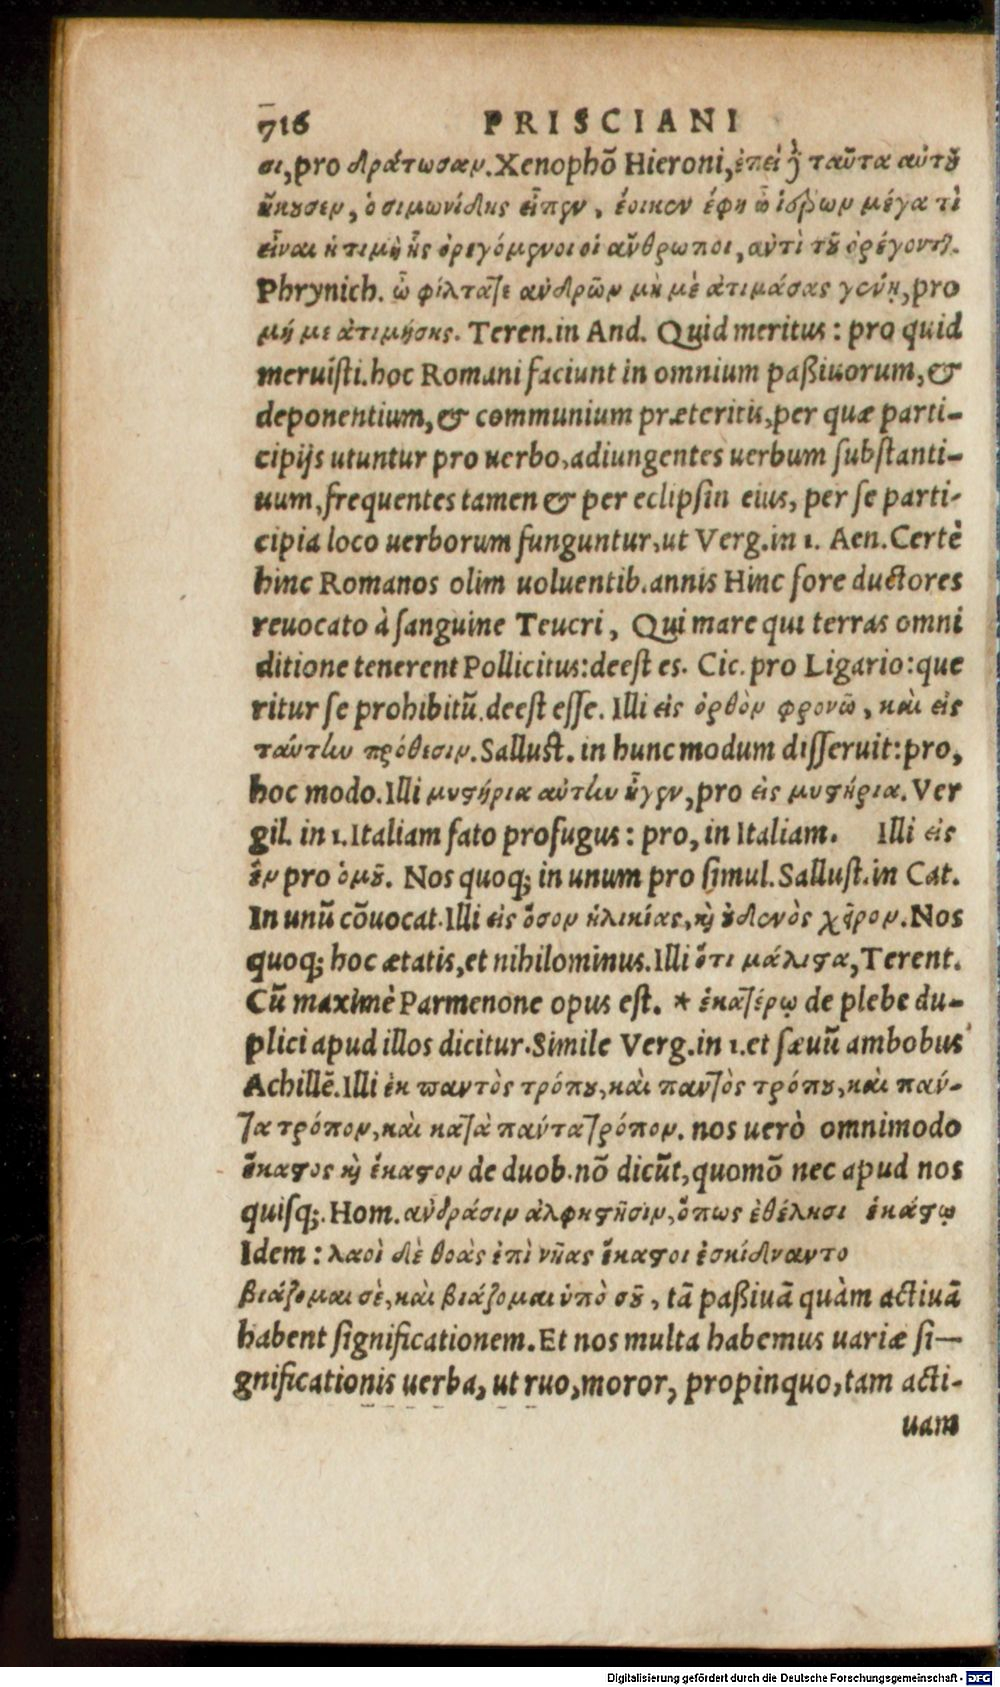 716 PRISCIANI
σι, pro δράτωσαν. Xenophō Hieroni, ἐπεὶ ταῦτα αὐτοῦ
ἤκουσεν, ὁ σιμωνίδης εἶπεν, ἔοικεν ἔφη ὦ ἱέρων μέγα τὶ
εἶναι ἡ τιμὴ ἧς ὀρεγόμενοι οἱ ἄνθρωποι, αὐτὶ τοῦ ὀρέγονται.
Phrynich. ὦ φίλτατε ἀνδρῶν μὴ μὲ ἀτιμάσας γένῃ, pro
μή με ἀτιμήσῃς. Teren. in And. Quid meritus: pro quid
meruisti. hoc Romani faciunt in omnium paßiuorum, &
deponentium, & communium præteritis, per quæ parti-
cipijs utuntur pro uerbo, adiungentes uerbum substanti-
uum, frequentes tamen & per eclipsin eius, per se parti-
cipia loco uerborum funguntur, ut Verg. in 1. Aen. Certè
hinc Romanos olim uoluentib. annis Hinc fore ductores
reuocato à sanguine Teucri, Qui mare qui terras omni
ditione tenerent Pollicitus: deest es. Cic. pro Ligario: que
ritur se prohibitū. deest esse. Illi εἰς ὀρθὸν φρονῶ, καὶ εἰς
ταύτην πρόθεσιν. Sallust. in hunc modum disseruit: pro,
hoc modo. Illi μυστήρια αὐτὴν ἦγεν, pro εἰς μυστήρια. Ver
gil. in 1. Italiam fato profugus: pro, in Italiam. Illi εἰς
ἓν pro ὁμοῦ. Nos quoq; in unum pro simul. Sallust. in Cat.
In unū cōuocat. Illi εἰς ὅσον ἡλικίας, καὶ οὐδενὸς χεῖρον. Nos
quoq; hoc ætatis, et nihilominus. Illi ὅτι μάλιστα, Terent.
Cū maximè Parmenone opus est. * ἑκατέρῳ de plebe du-
plici apud illos dicitur. Simile Verg. in 1. et sæuū ambobus
Achillē. Illi ἐκ παντὸς τρόπου, καὶ παντὸς τρόπου, καὶ πάν-
τα τρόπον, καὶ κατὰ πάντα τρόπον. nos uerò omnimodo
ἕκαστος καὶ ἕκαστον de duob. nō dicūt, quomō nec apud nos
quisq;. Hom. ἀνδράσιν ἀλφηστῇσιν, ὅπως ἐθέλησι ἑκάστῳ
Idem: λαοὶ δὲ θοὰς ἐπὶ νῆας ἕκαστοι ἐσκίδναντο
βιάζομαι σὲ, καὶ βιάζομαι ὑπὸ σοῦ, tā paßiuā quàm actiuā
habent significationem. Et nos multa habemus uariæ si-
gnificationis uerba, ut ruo, moror, propinquo, tam acti-
uam
Digitalisierung gefördert durch die Deutsche Forschungsgemeinschaft - DFG